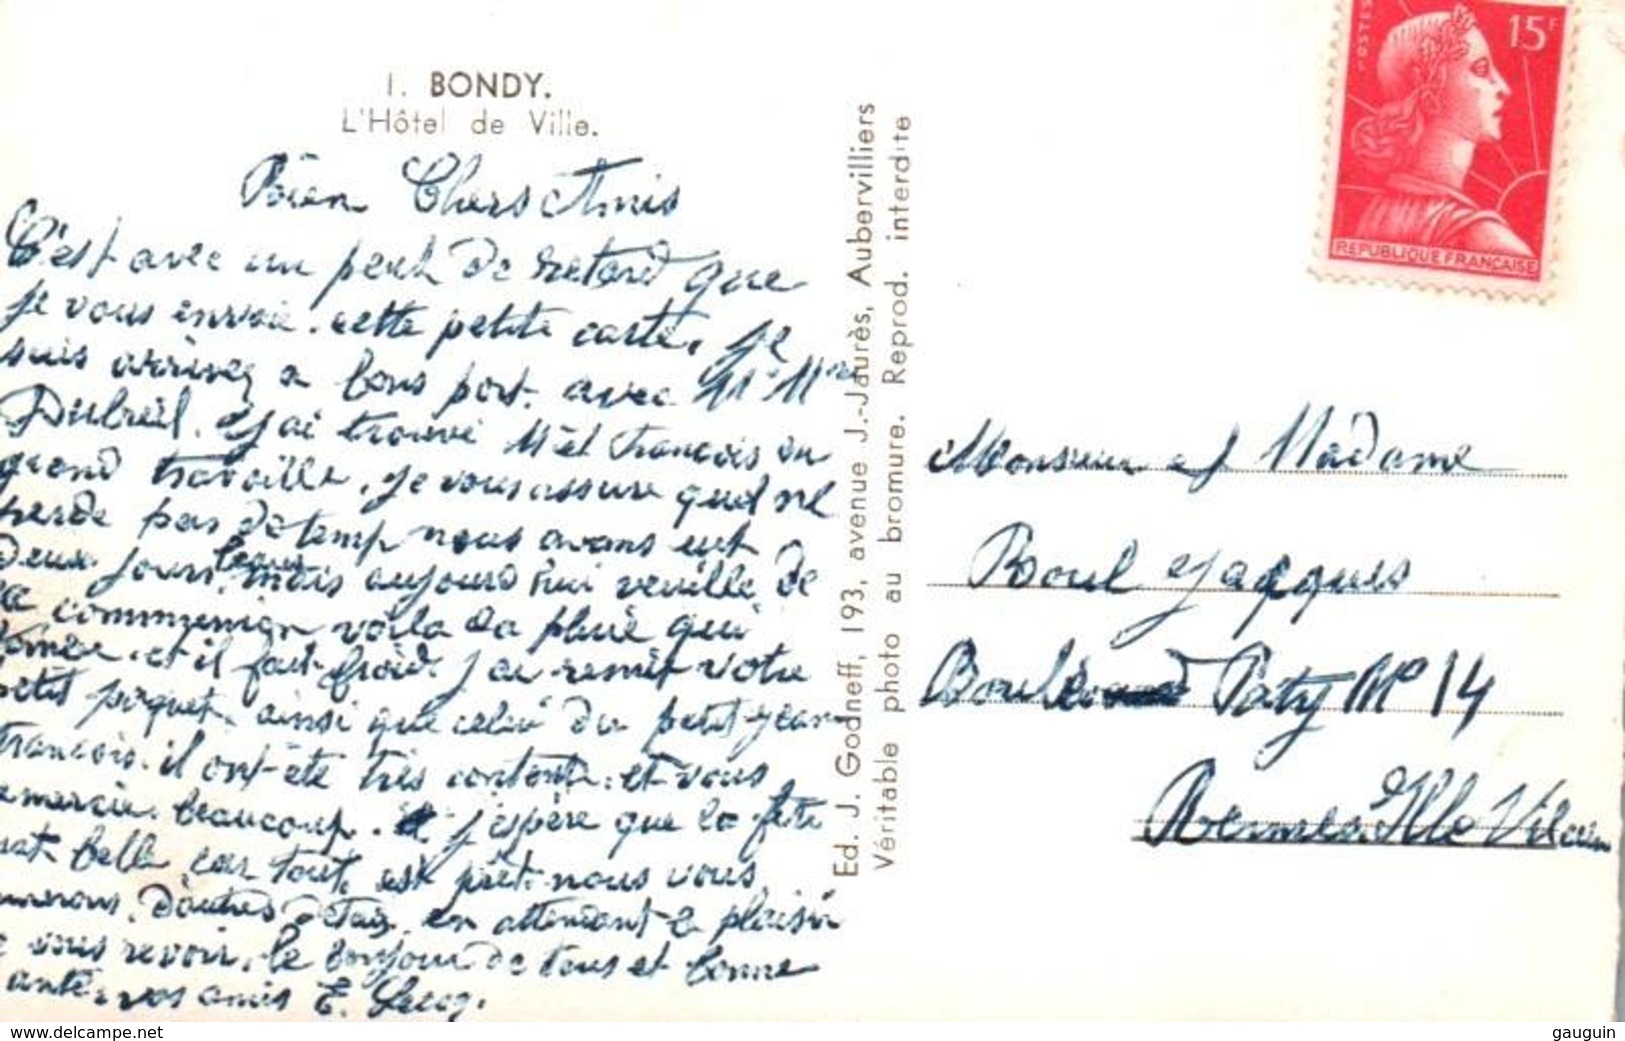 1. BONDY.
L'Hôtel de Ville.
Bien Chers Amis
C'est avec un peut de retard que
je vous envoie cette petite carte, je
suis arrivez a bons port. avec Mr Mme
Dubreil. j'ai trouvé M et François en
grand travaille, je vous assure quel ne
perde pas de temp nous avons eut
deux jours beaux mais aujourd'hui veuille de
la communion voila la pluie qui
tombe. et il fait froid. j'ai remit votre
petit paquet. ainsi que celui du petit jean
François. il ont été très contents. et vous
remercie beaucoup. j'espère que la fête
serat belle car tout est prêt. nous vous
donnerons d'autres detais en attendant le plaisir
de vous revoir. le bonjour de tous et bonne
santé. vos amis E. Lecoq.
Ed. J. Godneff, 193, avenue J.-Jaurès, Aubervilliers
Véritable photo au bromure. Reprod. interdite
POSTES
15F
REPUBLIQUE FRANÇAISE
Monsieur et Madame
Boul Jacques
Boulevard Paty No 14
Rennes Ille Vilaine
www.delcampe.net
gauguin